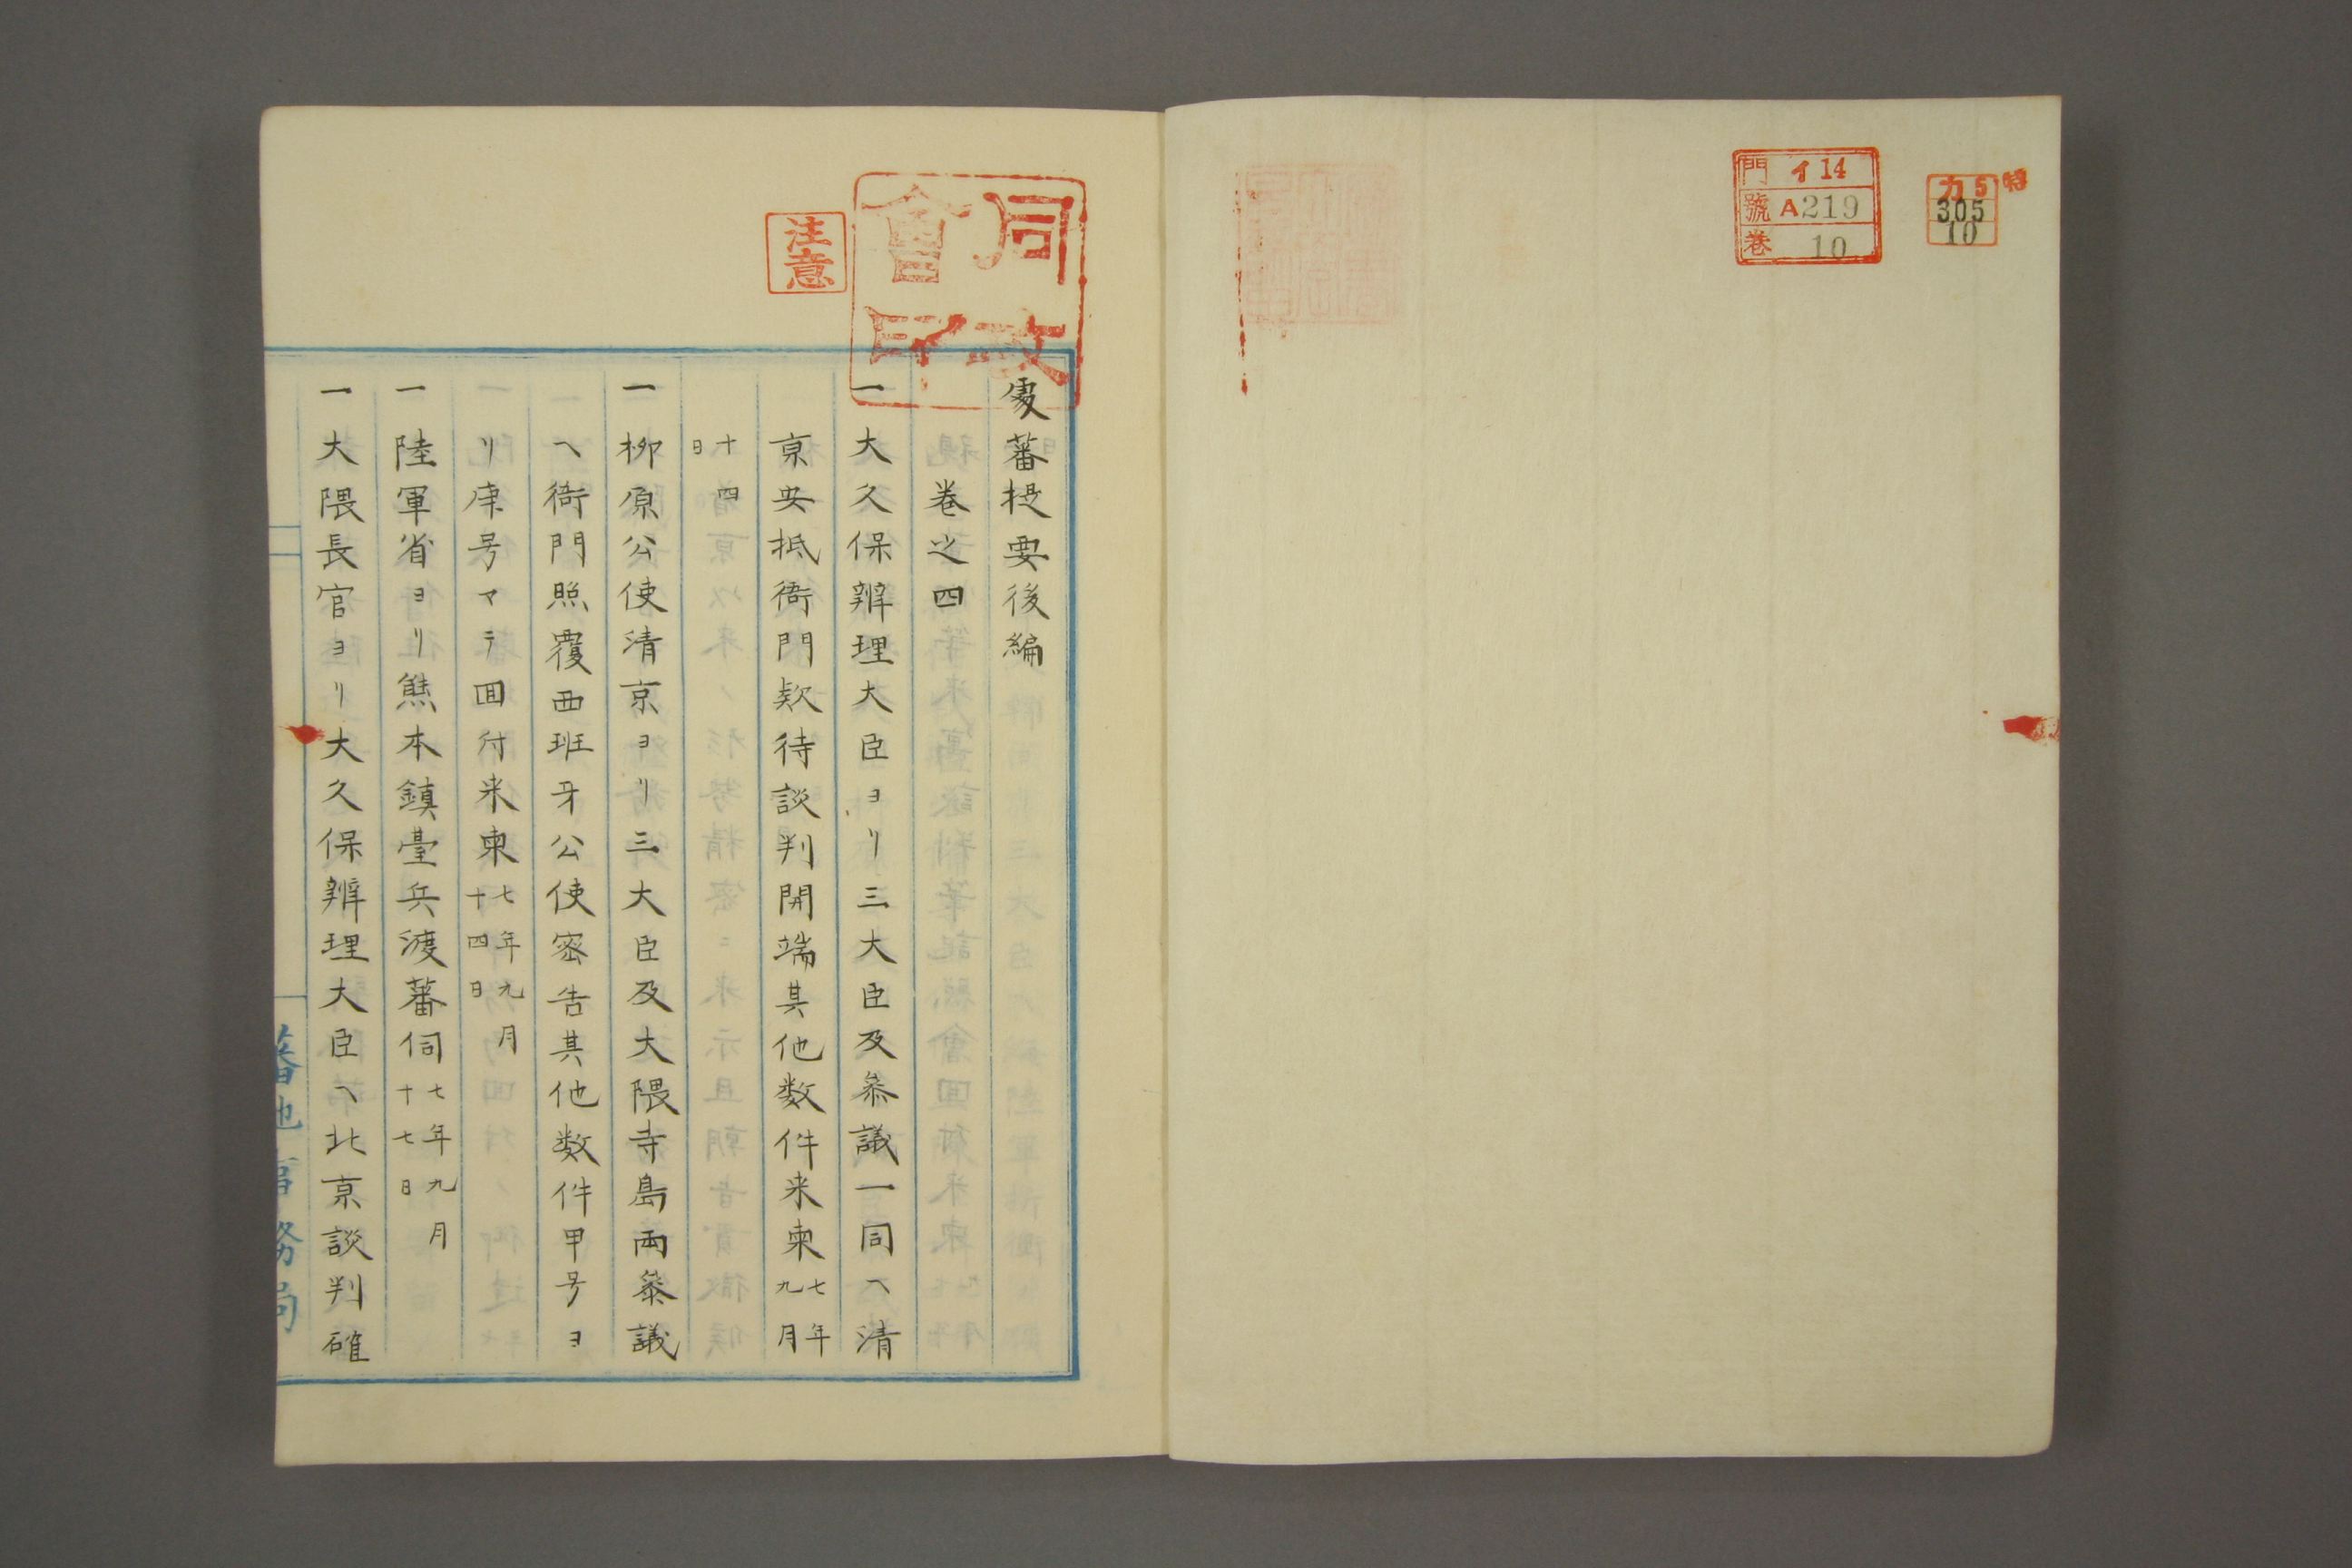 特
カ5
305
10
門 イ14
號 A219
巻 10
注意
處蕃提要後編
巻之四
一大久保辨理大臣ヨリ三大臣及叅議一同ヘ清
京安抵衙門欵待談判開端其他数件来柬七年九月
十四日
一柳原公使清京ヨリ三大臣及大隈寺島両叅議
ヘ衙門照覆西班牙公使密告其他数件甲号ヨ
リ庚号マテ囬付来柬七年九月十四日
一陸軍省ヨリ熊本鎮臺兵渡蕃伺七年九月十七日
一大隈長官ヨリ大久保辨理大臣ヘ北京談判確
蕃地事務局